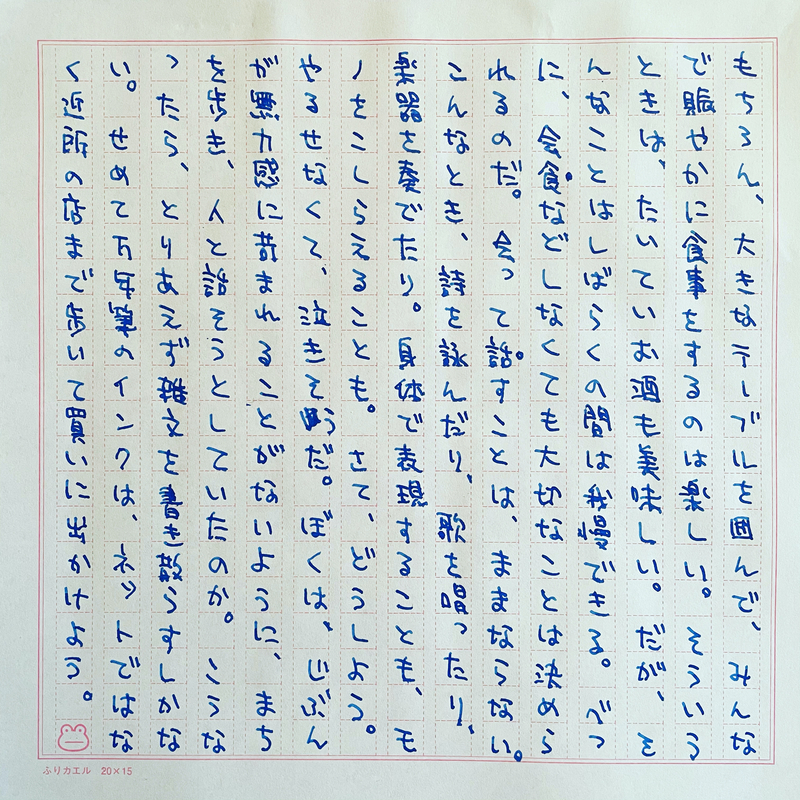 もちろん、大きなテーブルを囲んで、みんな
で賑やかに食事をするのは楽しい。そういう
ときは、たいていお酒も美味しい。だが、そ
んなことはしばらくの間は我慢できる。べつ
に、会食などしなくても大切なことは決めら
れるのだ。会って話すことは、ままならない。
こんなとき、詩を詠んだり、歌を唱ったり、
楽器を奏でたり。身体で表現することも、モ
ノをこしらえることも。さて、どうしよう。
やるせなくて、泣きそうだ。ぼくは、じぶん
が無力感に苛まれることがないように、まち
を歩き、人と話そうとしていたのか。こうな
ったら、とりあえず雑文を書き散らすしかな
い。せめて万年筆のインクは、ネットではな
く近所の店まで歩いて買いに出かけよう。
ふりカエル 20×15